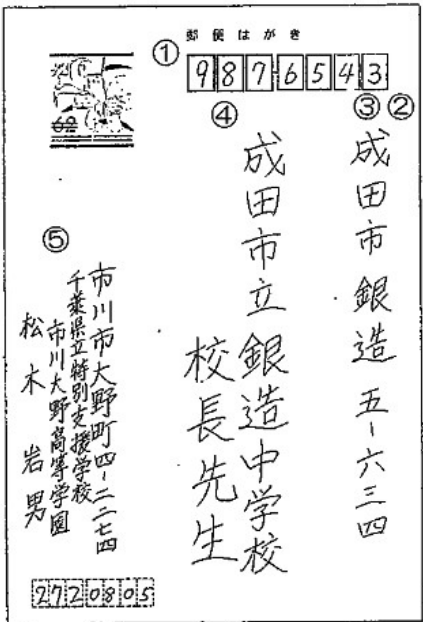 郵便はがき
① 9876543
③ ②
④
成田市銀造 五-六三四
成田市立銀造中学校
校長先生
62
⑤
市川市大野町四-二二七四
千葉県立特別支援学校
市川大野高等学園
松木岩男
2720805